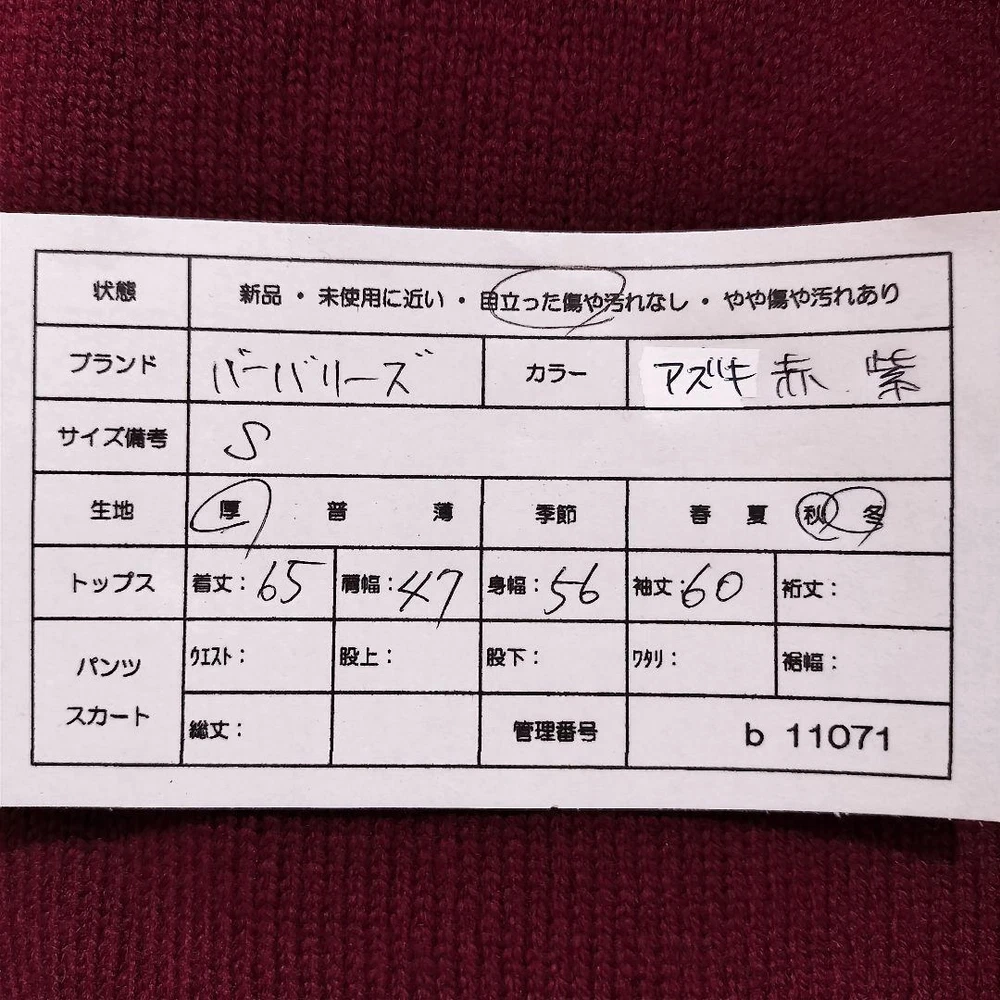 状態 新品・未使用に近い・目立った傷や汚れなし・やや傷や汚れあり
ブランド バーバリーズ カラー アズキ 赤 紫
サイズ備考 S
生地 厚 普 薄 季節 春 夏 秋 冬
トップス 着丈:65 肩幅:47 身幅:56 袖丈:60 裄丈:
パンツ スカート ウエスト: 股上: 股下: ワタリ: 裾幅:
総丈: 管理番号 b 11071